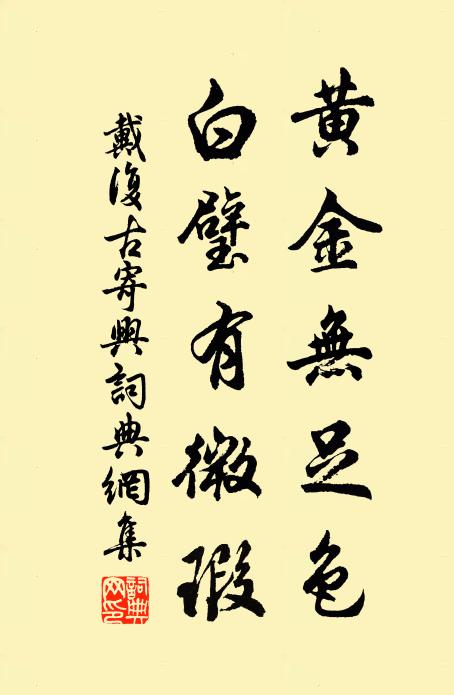 黄金無足色
白璧有微瑕
戴復古寄興詞典網集
詞典网印